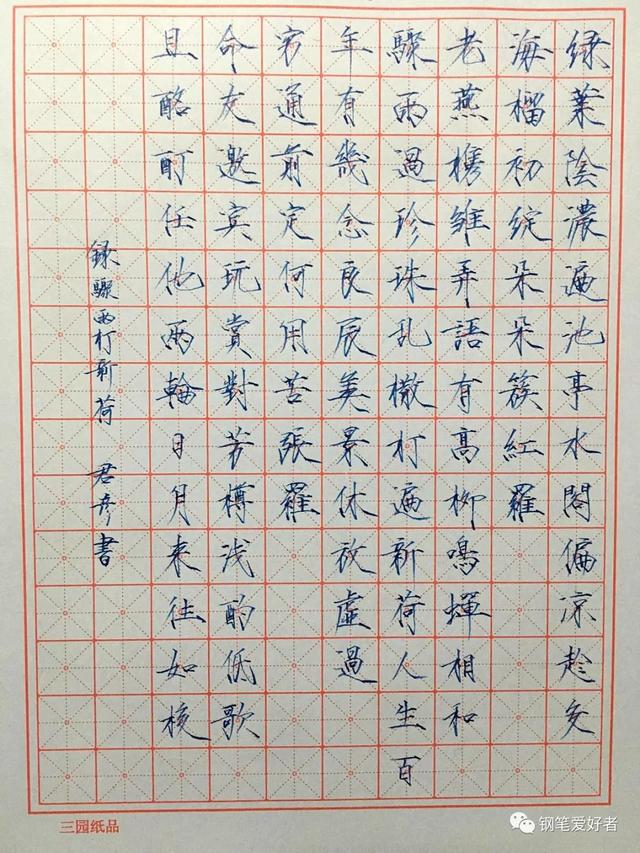 緑葉陰濃遍池亭水閣偏凉趁多
海榴初綻朵朵簇紅羅
老燕携雛弄語有高柳鳴蟬相和
驟雨過珍珠乱撒打遍新荷人生百
年有幾念良辰美景休放虚過
穷通前定何用苦張羅
命友邀宾玩賞對芳樽浅酌低歌
且酩酊任他两輪日月来往如梭
録驟雨打新荷 君彦書
三园纸品
钢笔爱好者